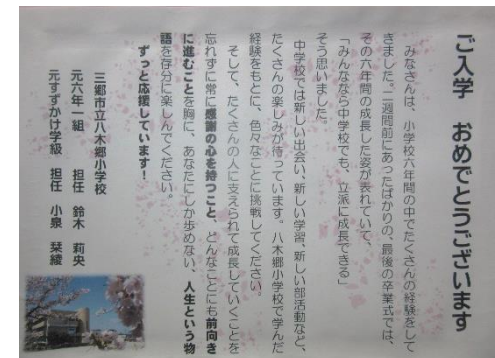 ご入学　おめでとうございます
みなさんは、小学校六年間の中でたくさんの経験をして
きました。二週間前にあったばかりの、最後の卒業式では、
その六年間の成長した姿が表れていて、
「みんななら中学校でも、立派に成長できる」
そう思いました。
中学校では新しい出会い、新しい学習、新しい部活動など、
たくさんの楽しみが待っています。八木郷小学校で学んだ
経験をもとに、色々なことに挑戦してください。
そして、たくさんの人に支えられて成長していくことを
忘れずに常に感謝の心を持つこと、どんなことにも前向き
に進むことを胸に、あなたにしか歩めない、人生という物
語を存分に楽しんでください。
ずっと応援しています！
三郷市立八木郷小学校
元六年一組　担任　鈴木　莉央
元すずかけ学級　担任　小泉　栞綾